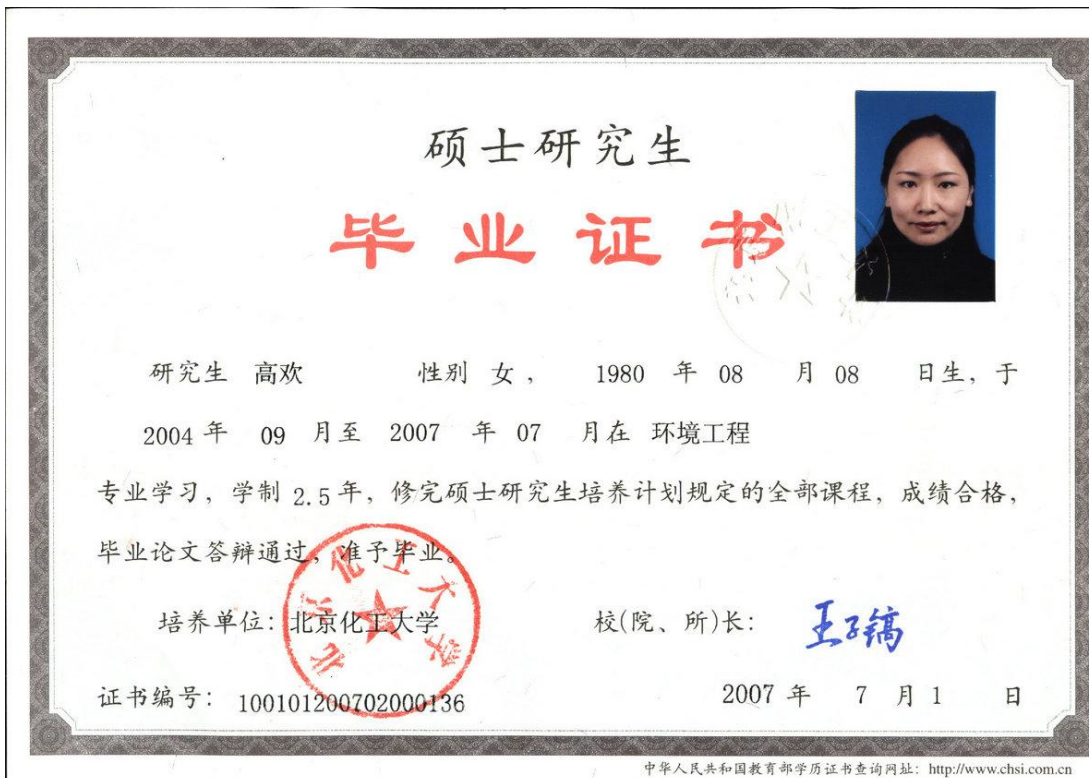 硕士研究生
毕业证书
研究生 高欢 性别 女， 1980 年 08 月 08 日生，于
2004 年 09 月至 2007 年 07 月在 环境工程
专业学习，学制 2.5 年，修完硕士研究生培养计划规定的全部课程，成绩合格，
毕业论文答辩通过，准予毕业。
北京化工大学
培养单位：北京化工大学 校(院、所)长： 王子镐
证书编号： 100101200702000136 2007 年 7 月 1 日
中华人民共和国教育部学历证书查询网址：http://www.chsi.com.cn